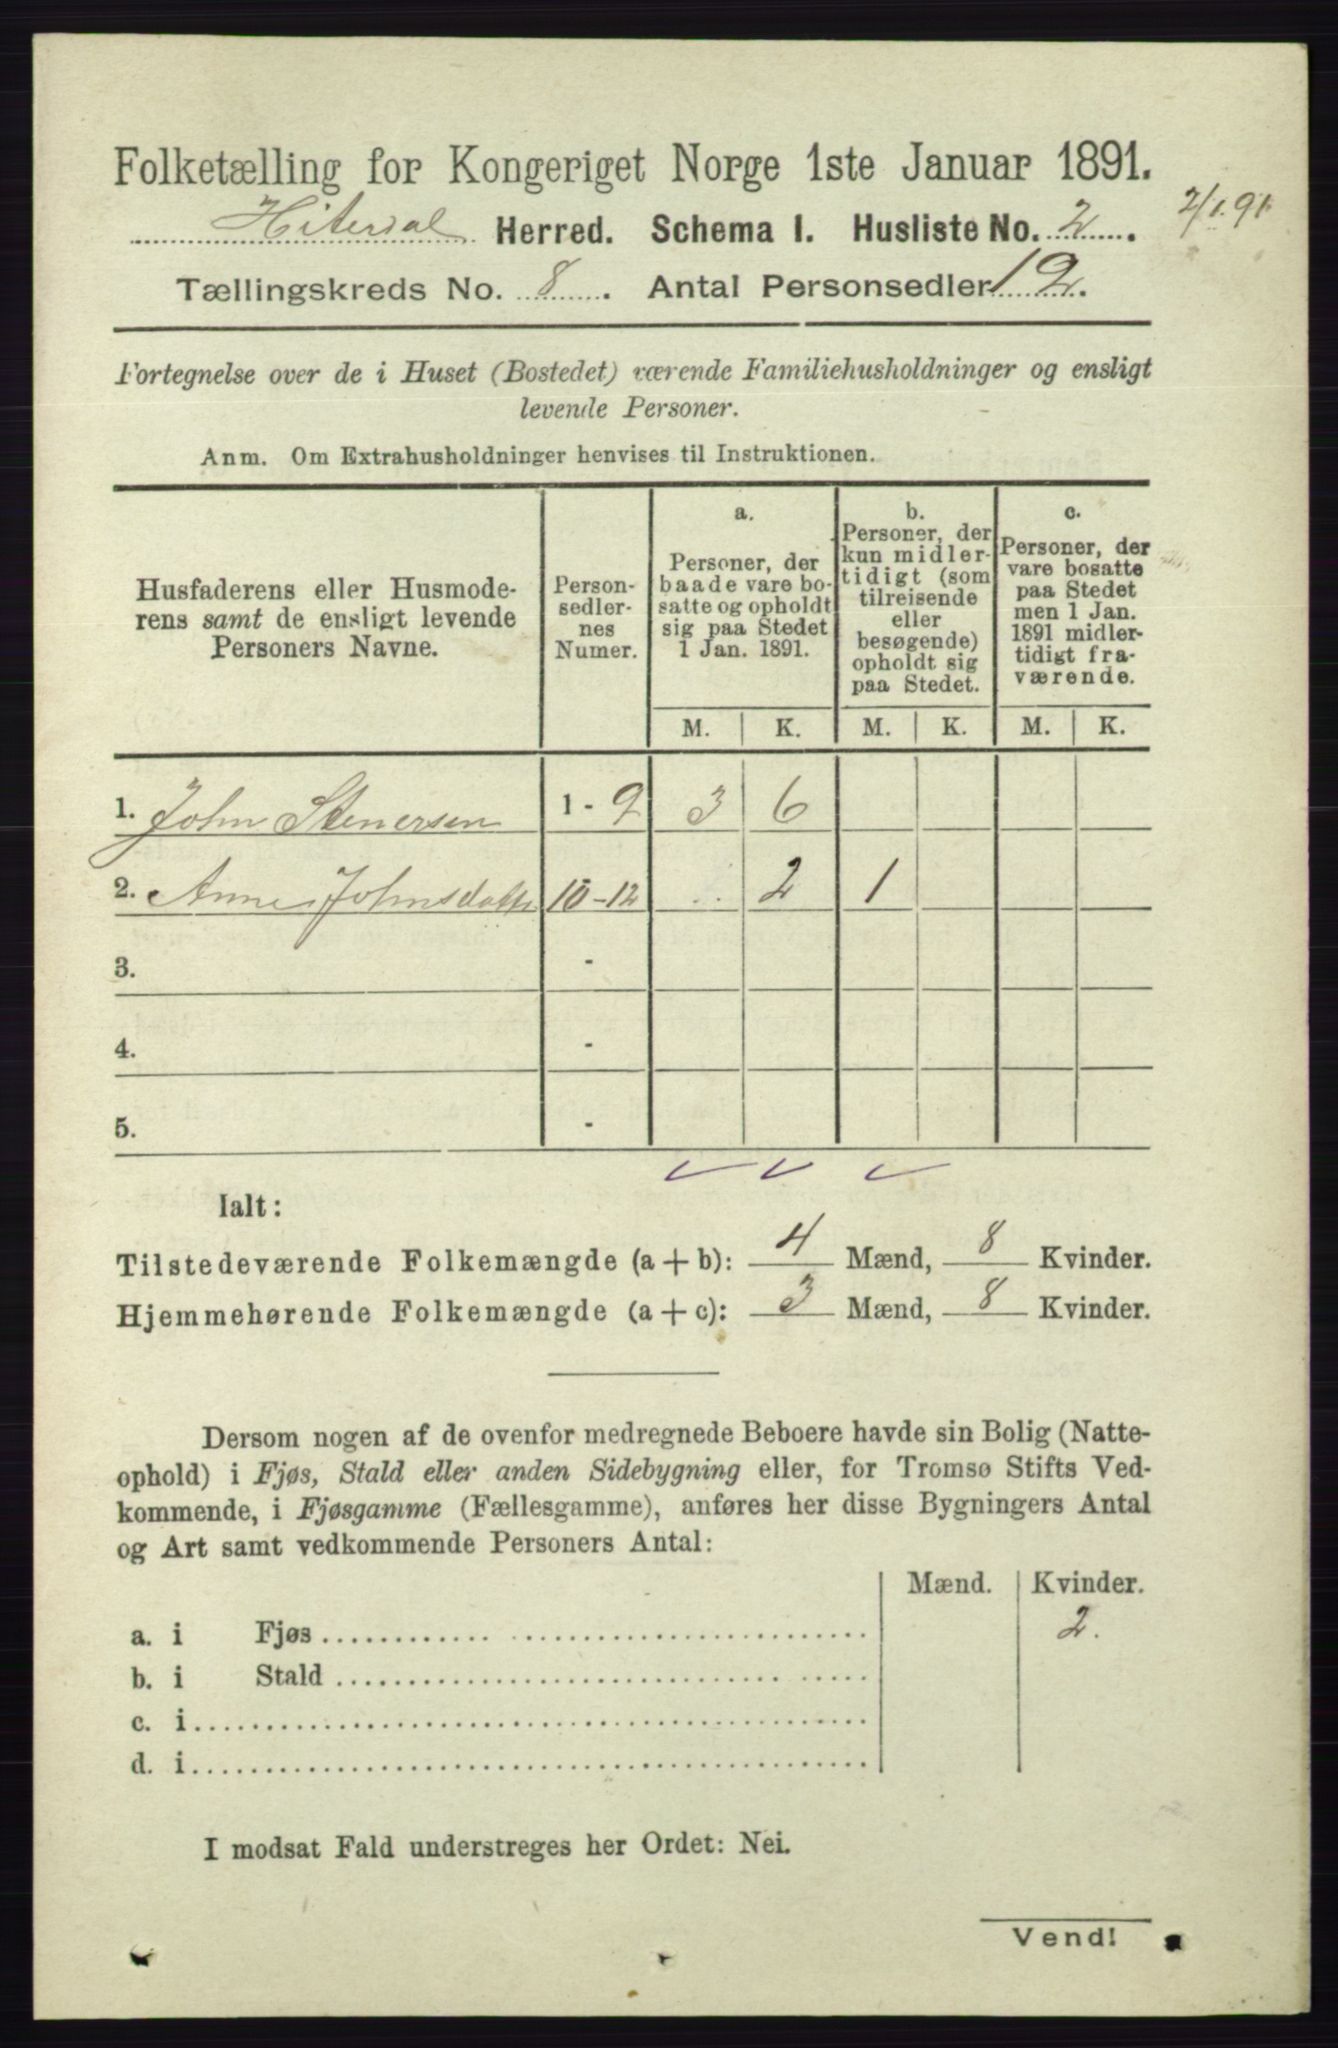 Folketælling for Kongeriget Norge 1ste Januar 1891.
2/1.91
Hiterdal Herred. Schema I. Husliste No. 2.
Tællingskreds No. 8. Antal Personsedler 12.
Fortegnelse over de i Huset (Bostedet) værende Familiehusholdninger og ensligt
levende Personer.
Anm. Om Extrahusholdninger henvises til Instruktionen.
Husfaderens eller Husmode-
rens samt de ensligt levende
Personers Navne.
Person-
sedler-
nes
Numer.
a.
Personer, der
baade vare bo-
satte og opholdt
sig paa Stedet
1 Jan. 1891.
b.
Personer, der
kun midler-
tidigt (som
tilreisende
eller
besøgende)
opholdt sig
paa Stedet.
c.
Personer, der
vare bosatte
paa Stedet
men 1 Jan.
1891 midler-
tidigt fra-
værende.
M. K. M. K. M. K.
1. John Stenersen 1 - 9 3 6
2. Anne Johnsdatter 10 - 12 .. 2 1
3. -
4. -
5. -
Ialt:
Tilstedeværende Folkemængde (a + b): 4 Mænd, 8 Kvinder.
Hjemmehørende Folkemængde (a + c): 3 Mænd, 8 Kvinder.
Dersom nogen af de ovenfor medregnede Beboere havde sin Bolig (Natte-
ophold) i Fjøs, Stald eller anden Sidebygning eller, for Tromsø Stifts Ved-
kommende, i Fjøsgamme (Fællesgamme), anføres her disse Bygningers Antal
og Art samt vedkommende Personers Antal:
Mænd. Kvinder.
a. i Fjøs 2.
b. i Stald
c. i
d. i
I modsat Fald understreges her Ordet: Nei.
Vend!